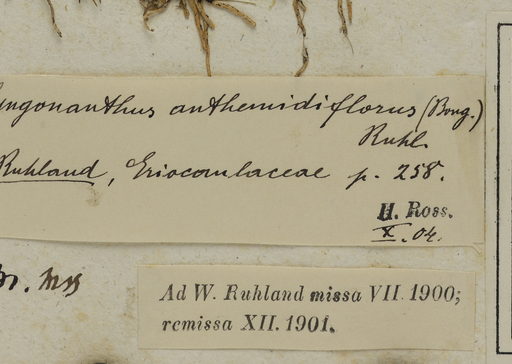 yngonanthus anthemidiflorus (Bong.)
Ruhl.
Ruhland, Eriocaulaceae p. 258.
H. Ross.
X. 04.
Ad W. Ruhland missa VII. 1900;
remissa XII. 1901.